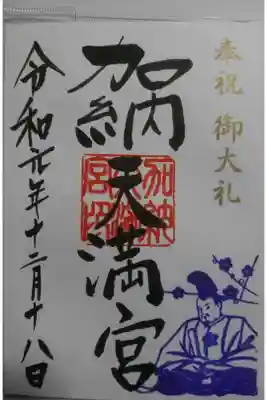 奉祝 御大礼
加納天満宮
令和元年十二月十八日